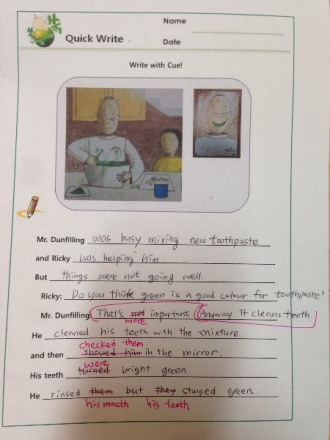 Name
Quick Write
Date
Write with Cue!
Mr. Dunfilling was busy mixing new toothpaste
and Ricky was helping him.
But things were not going well.
Ricky: Do you think green is a good colour for toothpaste?
Mr. Dunfilling: That's not important Anyway It cleans teeth.
more
He cleaned his teeth with the mixture
checked them
and then showed him in the mirror.
were
His teeth turned bright green.
He rinsed them but they stayed green.
his mouth his teeth